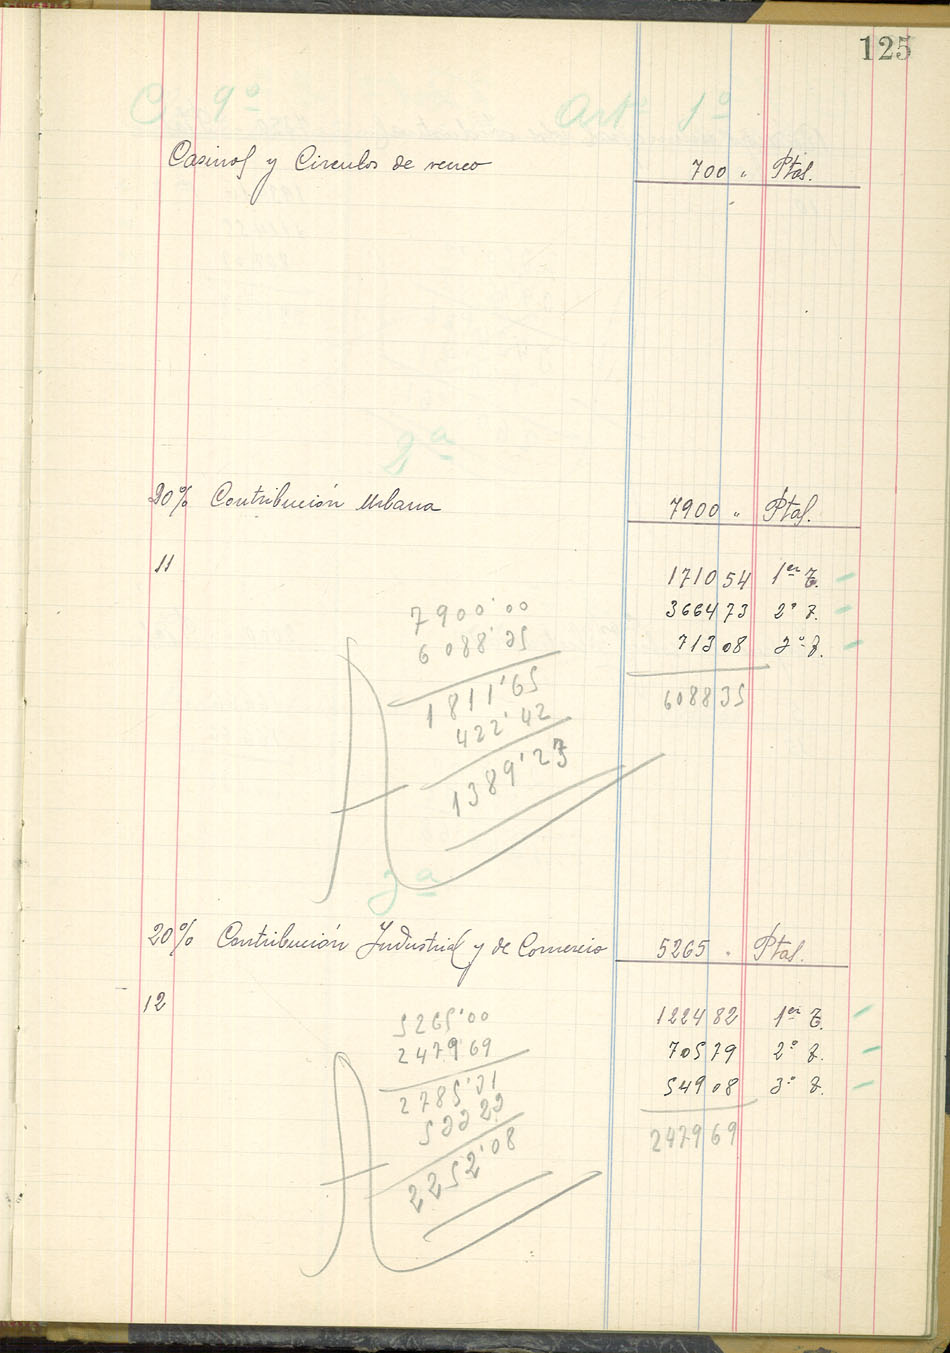 125
C. 9º Artº 1º
Casinos y Circulos de recreo 700 " Ptas.
2ª
20% Contribución Urbana 7900 " Ptas.
11
1710 54 1er T.
3664 73 2º T.
713 08 3º T.
6088 35
7900'00
6088'35
1811'65
422'42
1389'23
3ª
20% Contribución Industrial y de Comercio 5265 " Ptas.
12
1224 82 1er T.
705 79 2º T.
549 08 3º T.
2479 69
5265'00
2479'69
2785'31
533 23
2252'08